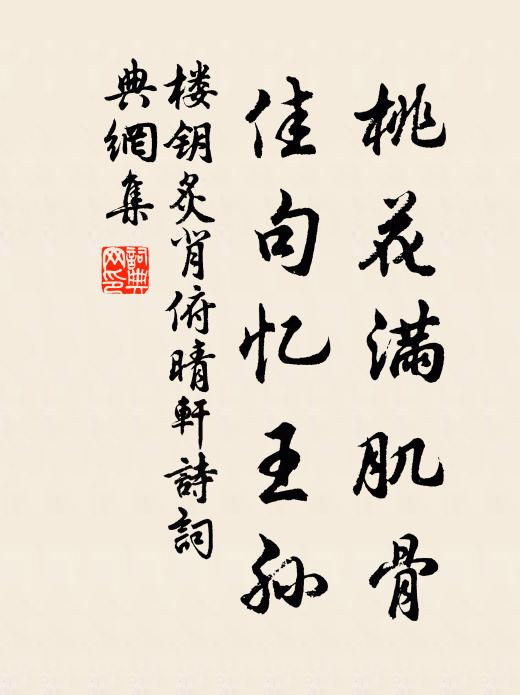 桃花满肌骨
佳句忆王孙
楼钥炙肖俯晴軒詩詞
典網集
詞典
网印